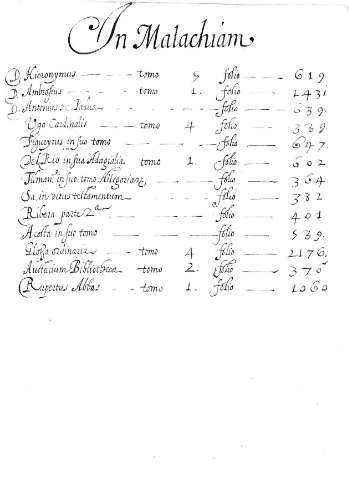 In Malachiam
D. Hieronymus — tomo 5 folio — 619.
D. Ambrosius — tomo 1. folio — 1431
D. Antonius de Padua — folio — 639.
Ugo Cardinalis — tomo 4 folio — 339
Figueyrus in suo tomo — folio — 647.
Del Rio in sua Adagialia. tomo 1 folio — 602
in suo tomo Allegoriarũ — folio — 364
Sa, in vetus testamentum — folio — 382
Ribera parte 2ª — folio — 401
Acosta in suo tomo — folio — 539.
Glossa ordinaria — tomo 4 folio — 2176.
Auctarium Bibliothecæ — tomo 2. folio — 376
Rupertus Abbas — tomo 1. folio — 1060